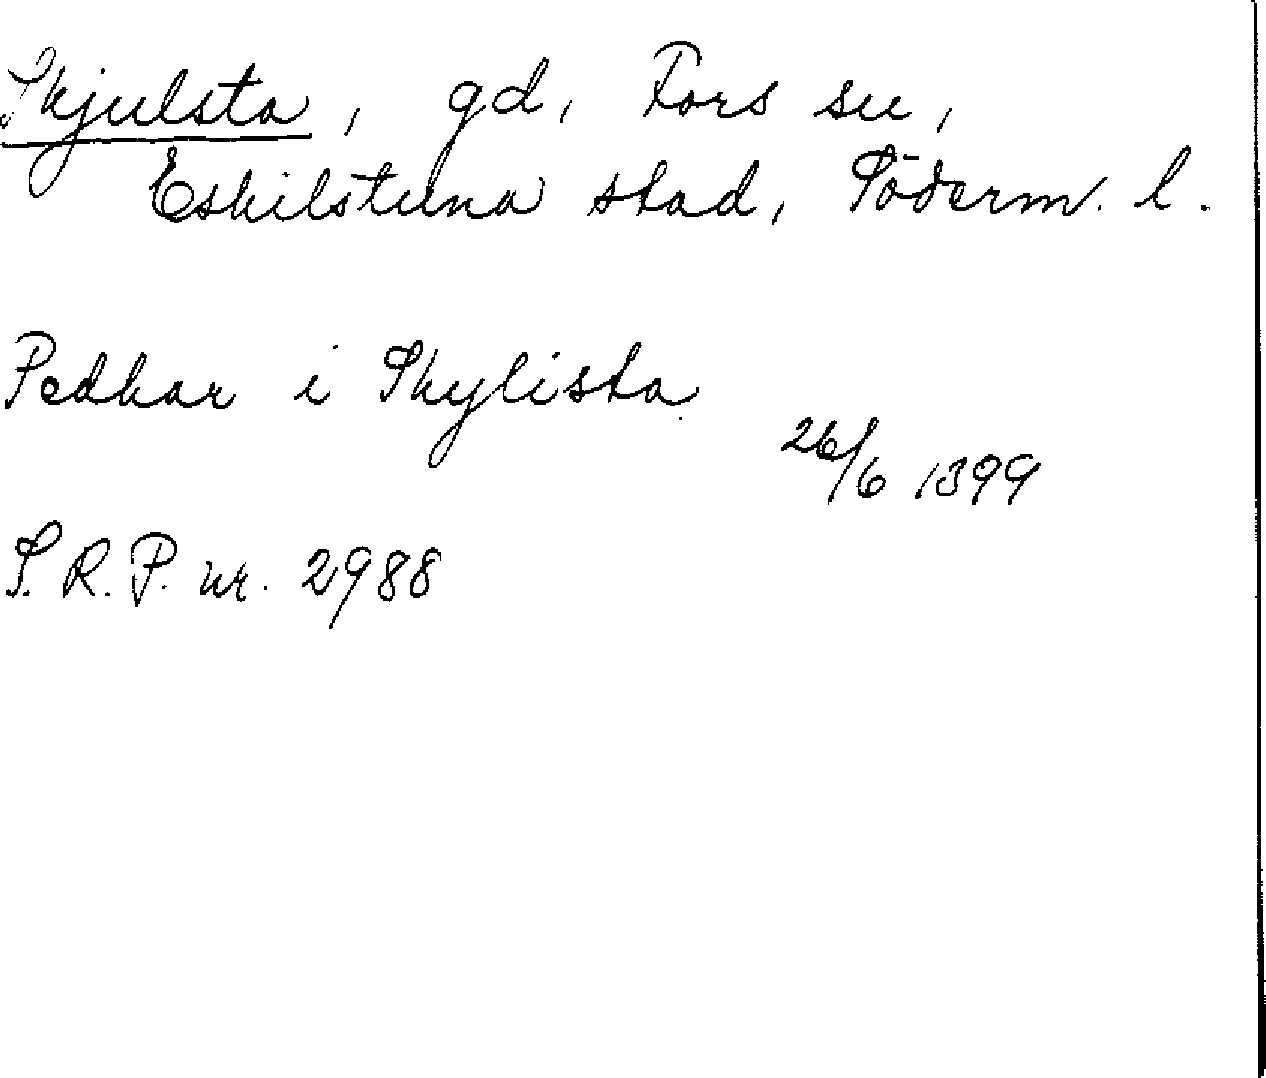 Skjulsta, gd, Fors sn,
Eskilstuna stad, Söderm. l.
Pedhar i Skylista
26/6 1399
S.R.P. nr. 2988